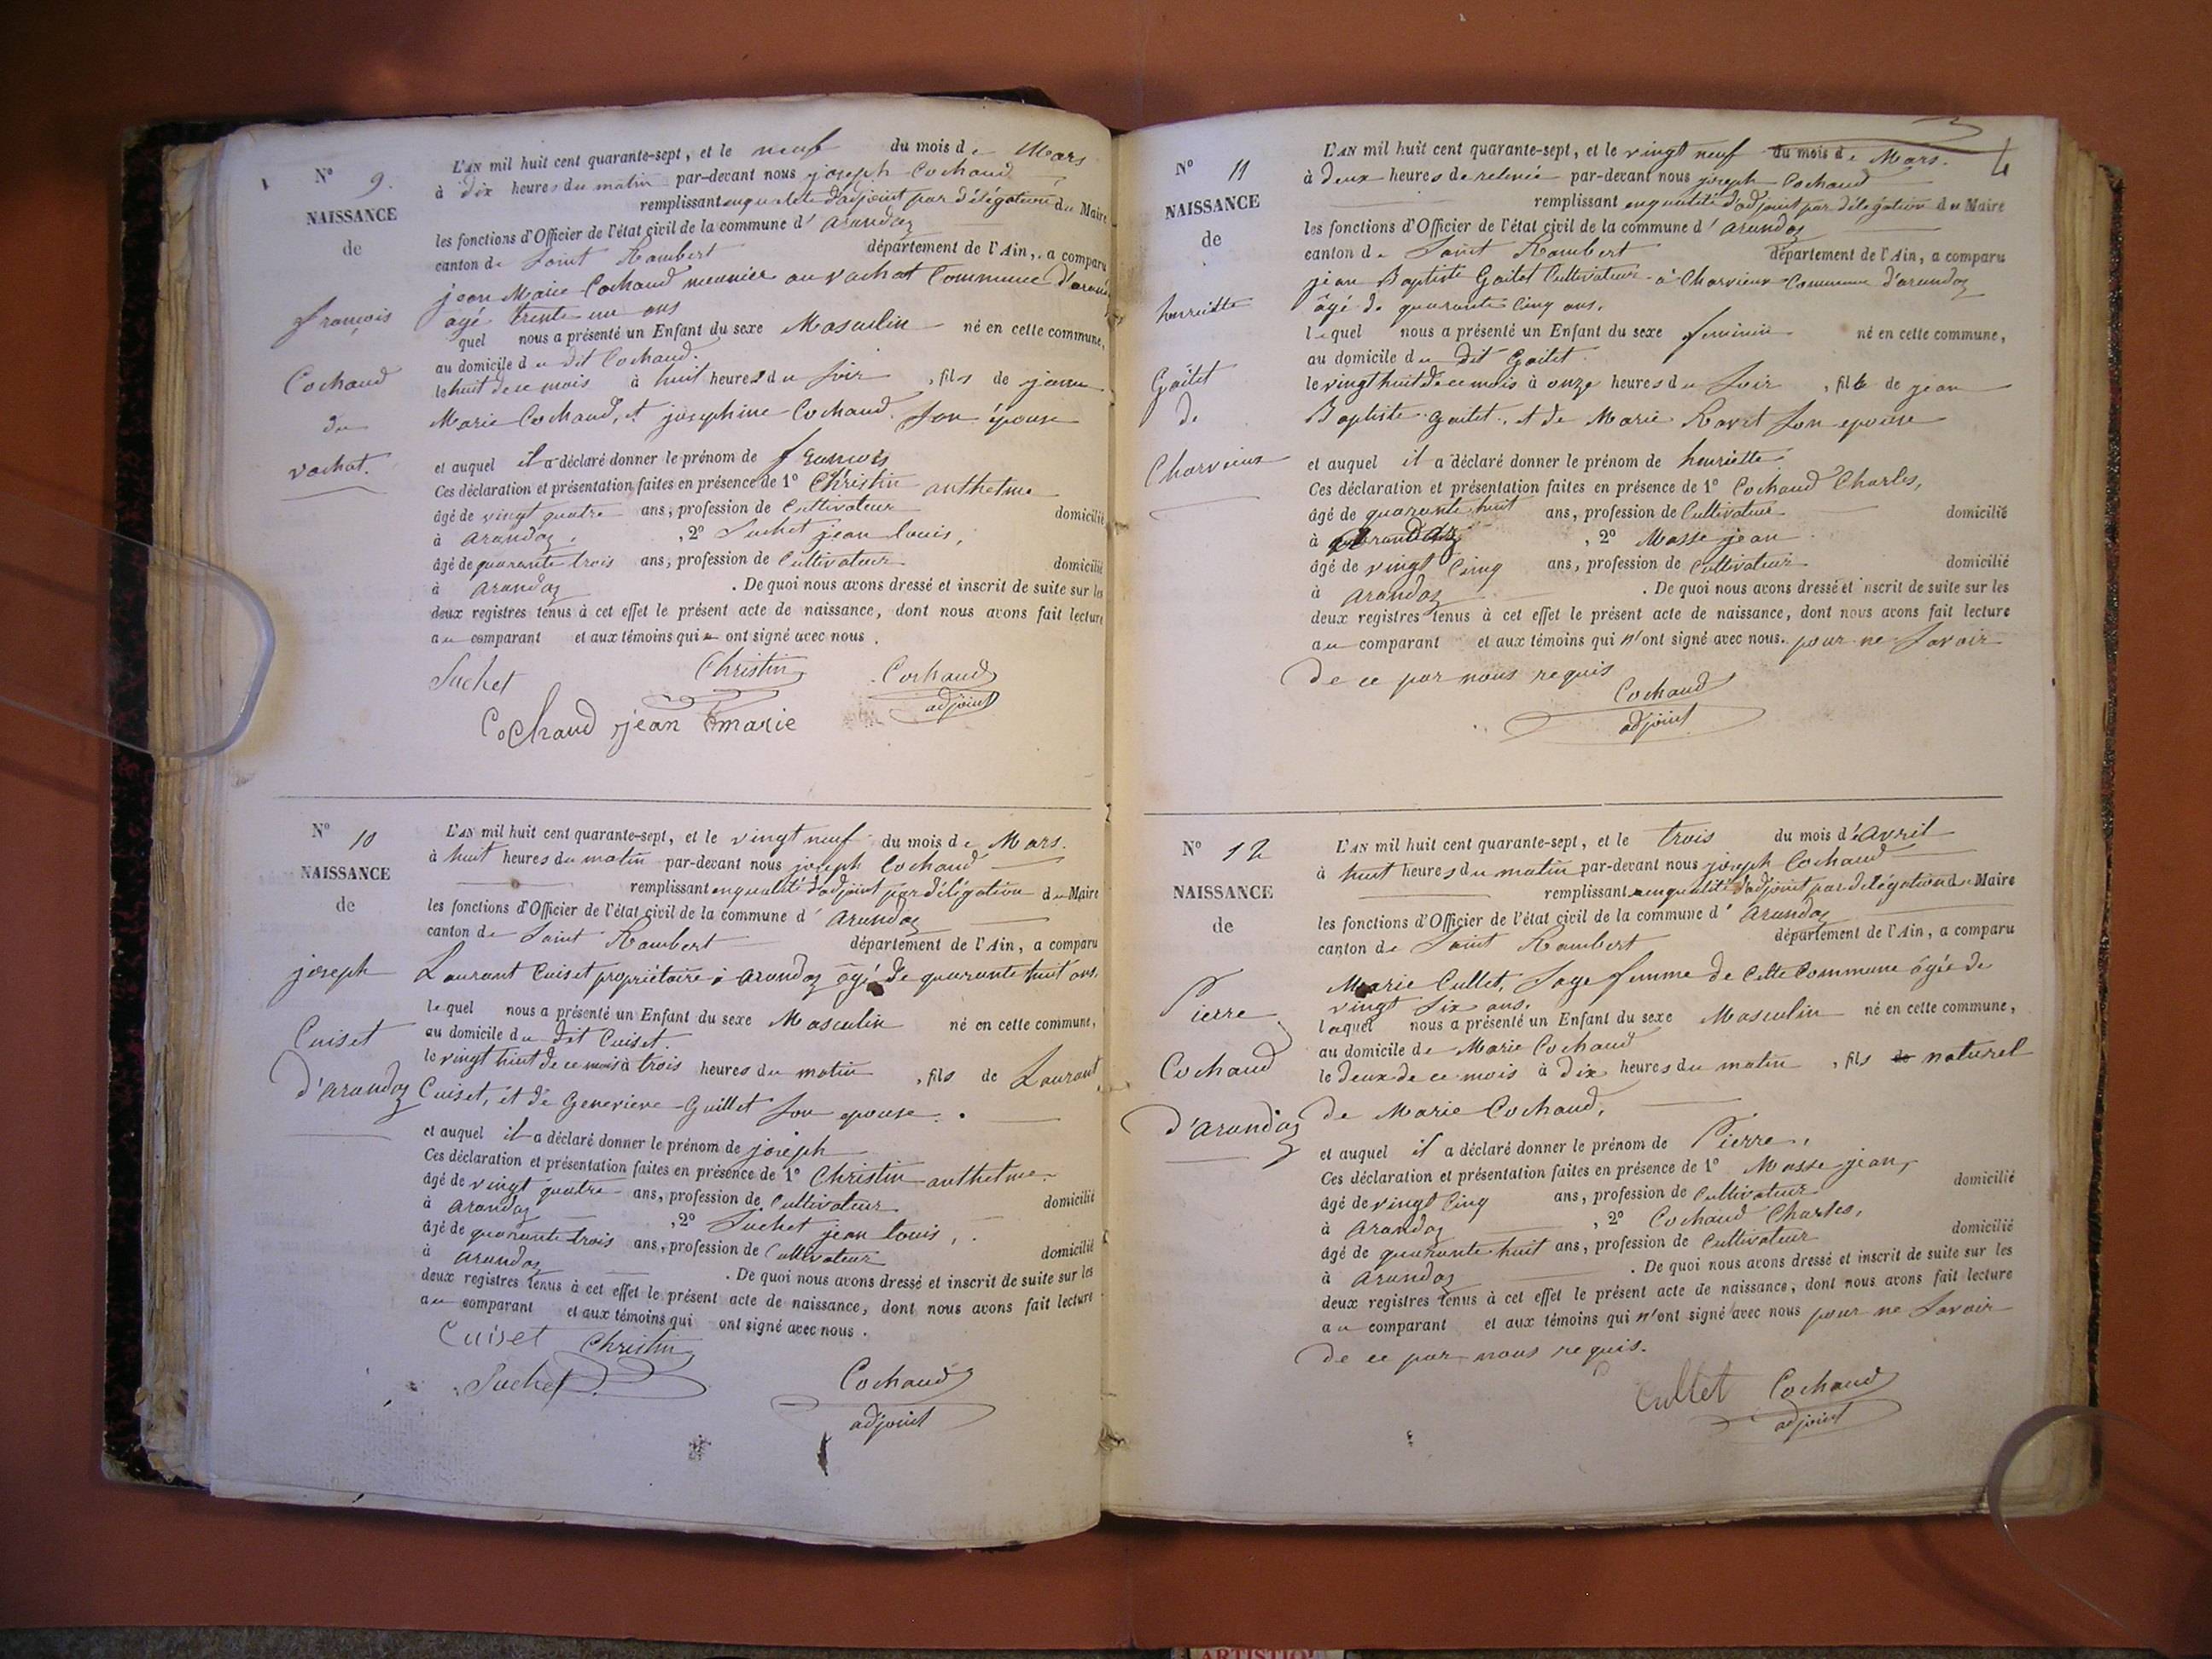 N° 9.
NAISSANCE
de
françois
Cochaud
du
vachat.
L'AN mil huit cent quarante-sept, et le neuf du mois de Mars
à dix heures du matin par-devant nous joseph Cochaud
remplissant en qualité d'adjoint par délégation du Maire
les fonctions d'Officier de l'état civil de la commune d'arandaz
canton de Saint Rambert département de l'Ain, a comparu
jean Marie Cochaud meunier au vachat Commune d'arandaz
âgé trente un ans
quel nous a présenté un Enfant du sexe Masculin né en cette commune,
au domicile du dit Cochaud.
le huit de ce mois à huit heures du soir, fils de jean
Marie Cochaud, et joséphine Cochaud son épouse
et auquel il a déclaré donner le prénom de françois
Ces déclaration et présentation faites en présence de 1° Christin anthelme
âgé de vingt quatre ans, profession de Cultivateur domicilié
à arandaz, 2° Suchet jean louis,
âgé de quarante trois ans, profession de Cultivateur domicilié
à arandaz. De quoi nous avons dressé et inscrit de suite sur les
deux registres tenus à cet effet le présent acte de naissance, dont nous avons fait lecture
au comparant et aux témoins qui ont signé avec nous.
Suchet Christin Cochaud
adjoint
Cochaud jean marie
N° 10
NAISSANCE
de
joseph
Cuiset
d'arandaz
L'AN mil huit cent quarante-sept, et le vingt neuf du mois de Mars.
à huit heures du matin par-devant nous joseph Cochaud
remplissant en qualité d'adjoint par délégation du Maire
les fonctions d'Officier de l'état civil de la commune d'arandaz
canton de Saint Rambert département de l'Ain, a comparu
Laurant Cuiset propriétaire à arandaz âgé de quarante huit ans,
lequel nous a présenté un Enfant du sexe Masculin né en cette commune,
au domicile du dit Cuiset.
le vingt huit de ce mois à trois heures du matin, fils de Laurant
Cuiset, et de Genevieve Guillet son epouse.
et auquel il a déclaré donner le prénom de joseph
Ces déclaration et présentation faites en présence de 1° Christin anthelme
âgé de vingt quatre ans, profession de Cultivateur domicilié
à arandaz, 2° Suchet jean louis,
âgé de quarante trois ans, profession de Cultivateur domicilié
à arandaz. De quoi nous avons dressé et inscrit de suite sur les
deux registres tenus à cet effet le présent acte de naissance, dont nous avons fait lecture
au comparant et aux témoins qui ont signé avec nous.
Cuiset Christin
Suchet Cochaud
adjoint
4
N° 11
NAISSANCE
de
henriette
Goitet
de
Charvieux
L'AN mil huit cent quarante-sept, et le vingt neuf du mois de Mars.
à deux heures de relevée par-devant nous joseph Cochaud
remplissant en qualité d'adjoint par délégation du Maire
les fonctions d'Officier de l'état civil de la commune d'arandaz
canton de Saint Rambert département de l'Ain, a comparu
jean Baptiste Goitet Cultivateur à Charvieux Commune d'arandaz
âgé de quarante Cinq ans.
lequel nous a présenté un Enfant du sexe feminin né en cette commune,
au domicile du dit Goitet.
le vingt huit de ce mois à onze heures du soir, fille de jean
Baptiste goitet, et de Marie Ravet son epouse
et auquel il a déclaré donner le prénom de henriette
Ces déclaration et présentation faites en présence de 1° Cochaud Charles,
âgé de quarante huit ans, profession de Cultivateur domicilié
à arandaz, 2° Masse jean
âgé de vingt Cinq ans, profession de Cultivateur domicilié
à arandaz. De quoi nous avons dressé et inscrit de suite sur les
deux registres tenus à cet effet le présent acte de naissance, dont nous avons fait lecture
au comparant et aux témoins qui n'ont signé avec nous. pour ne savoir
de ce par nous requis
Cochaud
adjoint
N° 12
NAISSANCE
de
Pierre
Cochaud
d'arandaz
L'AN mil huit cent quarante-sept, et le trois du mois d'avril
à huit heures du matin par-devant nous joseph Cochaud
remplissant en qualité d'adjoint par délégation du Maire
les fonctions d'Officier de l'état civil de la commune d'arandaz
canton de Saint Rambert département de l'Ain, a comparu
Marie Cullet, Sage femme de Cette Commune âgée de
vingt six ans.
laquel nous a présenté un Enfant du sexe Masculin né en cette commune,
au domicile de Marie Cochaud
le deux de ce mois à dix heures du matin, fils de naturel
de Marie Cochaud,
et auquel il a déclaré donner le prénom de Pierre,
Ces déclaration et présentation faites en présence de 1° Masse jean,
âgé de vingt Cinq ans, profession de Cultivateur domicilié
à arandaz, 2° Cochaud Charles,
âgé de quarante huit ans, profession de Cultivateur domicilié
à arandaz. De quoi nous avons dressé et inscrit de suite sur les
deux registres tenus à cet effet le présent acte de naissance, dont nous avons fait lecture
au comparant et aux témoins qui n'ont signé avec nous pour ne savoir
de ce par nous requis.
Cullet Cochaud
adjoint